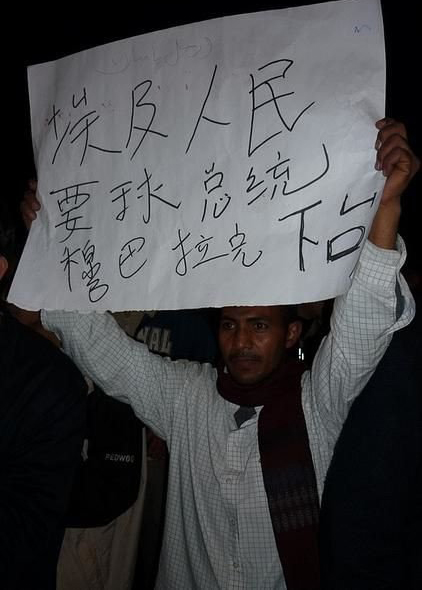 埃及人民
要球总统
穆巴拉克下台
PEDWOO